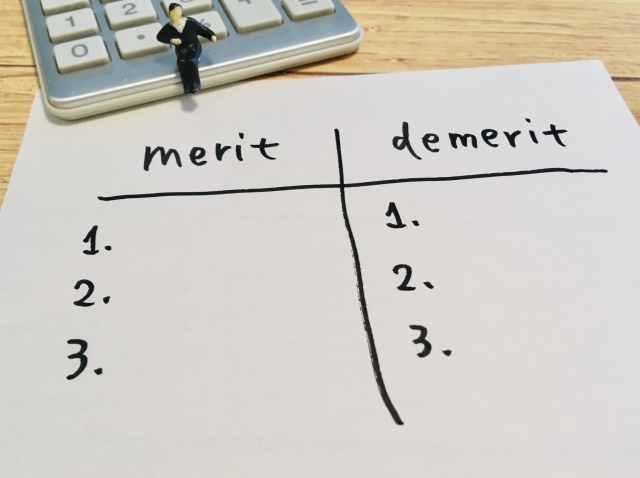 1 2
0 • %
merit demerit
1. 1.
2. 2.
3. 3.